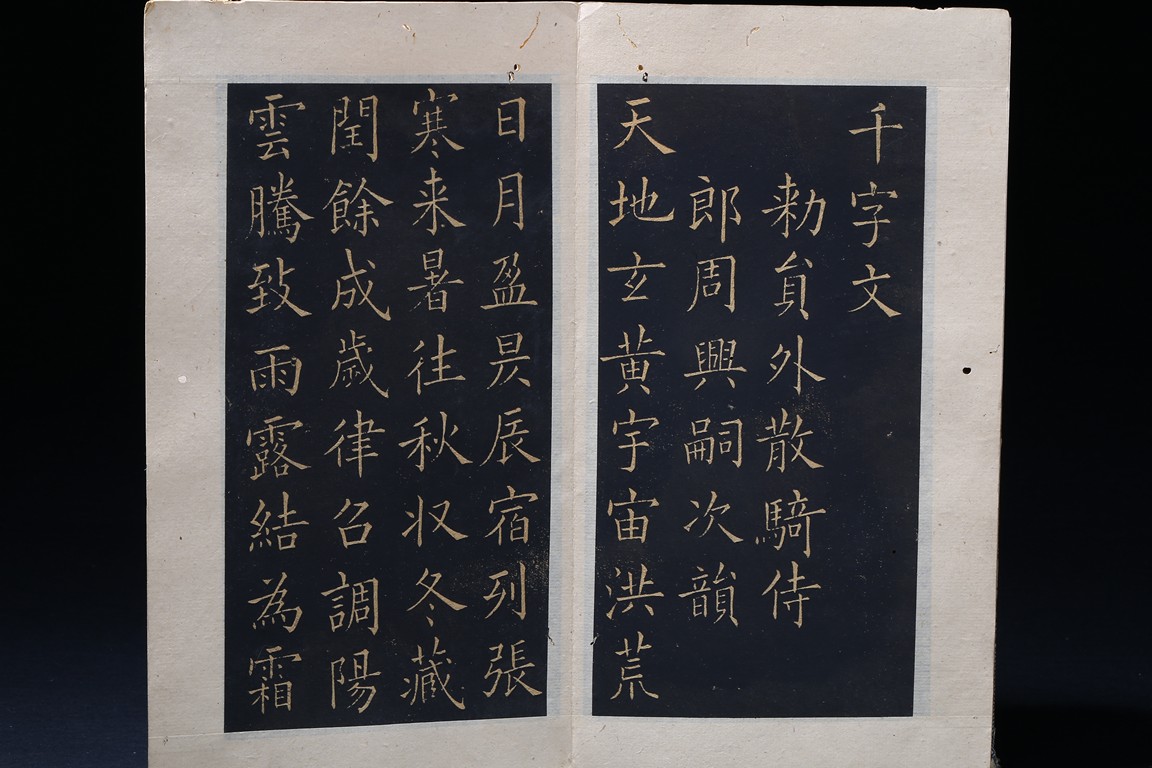 千字文
勅貟外散騎侍
郎周興嗣次韻
天地玄黃宇宙洪荒
日月盈昃辰宿列張
寒来暑往秋収冬藏
閏餘成歲律召調陽
雲騰致雨露結為霜